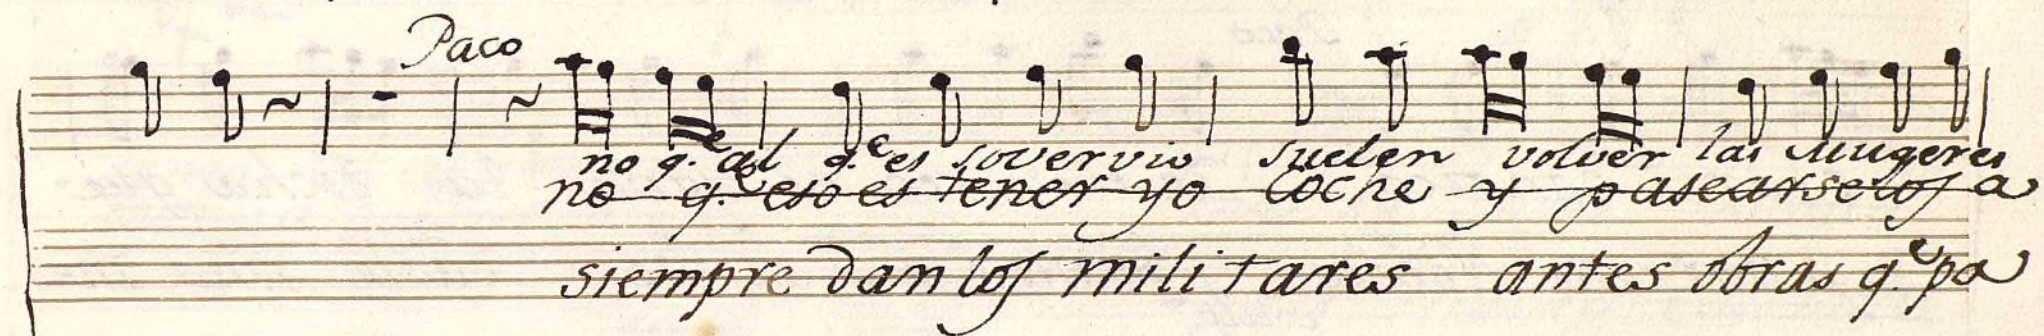 Paco
no q.e al q.e es sovervio suelen volver las mugeres
no q.e eso es tener yo coche y pasearselos a
siempre dan los militares antes obras q.e pa